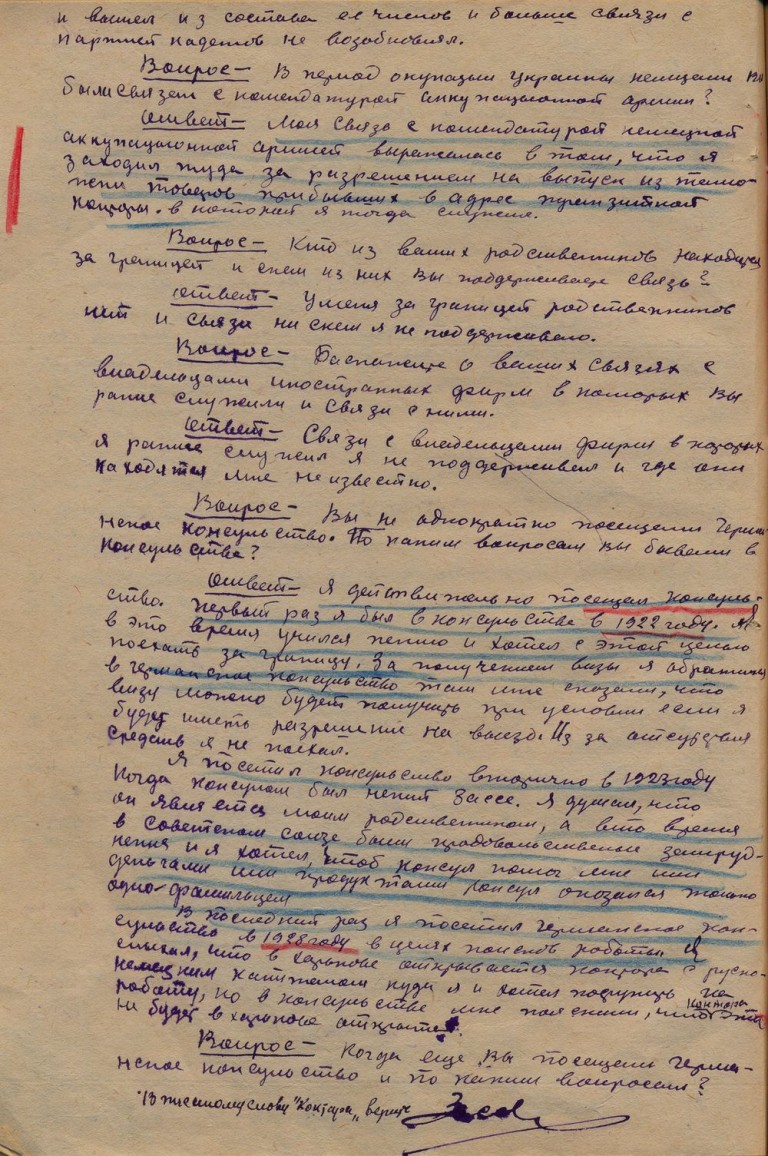 и вышел из состава ее членов и больше связи с
партией кадетов не возобновлял.
Вопрос— В период окупации Украины немцами вы
были связан с комендатурой оккупационной армии?
Ответ— Моя связь с комендатурой немецкой
аккупационной армией выражалась в том, что я
заходил туда за разрешением на выпуск из тамо-
жни товаров прибывших в адрес транзитной
конторы. в которой я тогда служил.
Вопрос— Кто из ваших родственников находится
за границей и скем из них вы поддерживаете связь?
Ответ— У меня за границей родственников
нет и связи ни скем я не поддерживаю.
Вопрос— Раскажите о ваших связях с
владельцами иностранных фирм в которых вы
ранше служили и связи с ними.
Ответ— Связи с владельцами фирм в которых
я ранше служил я не поддерживал и где они
находятся мне неизвестно.
Вопрос— Вы не однократно посещали Герман
нское консульство. По каким вопросам вы бывали в
консульстве?
Ответ— Я действительно посещал консуль-
ство. Первый раз я был в консульстве в 1922 году. Я
в это время учился пению и хотел с этой целью
поехать за границу. За получением визы я обратился
в германское консульство там мне сказали, что
визу можно будет получить при условии если я
буду иметь разрешение на выезд. Из за отсутствия
средств я не поехал.
Я посетил консульство вторично в 1923 году
когда консулом был некий Зассе. Я думал, что
он является моим родственником, а в то время
в советском союзе были продовольственные затруд-
нения и я хотел, чтоб консул помог мне или
деньгами или продуктами консул оказался только
одно-фамильцем
В последний раз я посетил Германское кон-
сульство в 1928 году в целях поисков работы. Я
слыхал, что в Харькове открывается контора с руско-
немецким капиталом куда я и хотел поступить на
работу, но в консульстве мне пояснили, что эта контора
не будет в Харькове открыта.
Вопрос— Когда еще вы посещали Герма-
нское консульство и по каким вопросам?
"Контора" верить